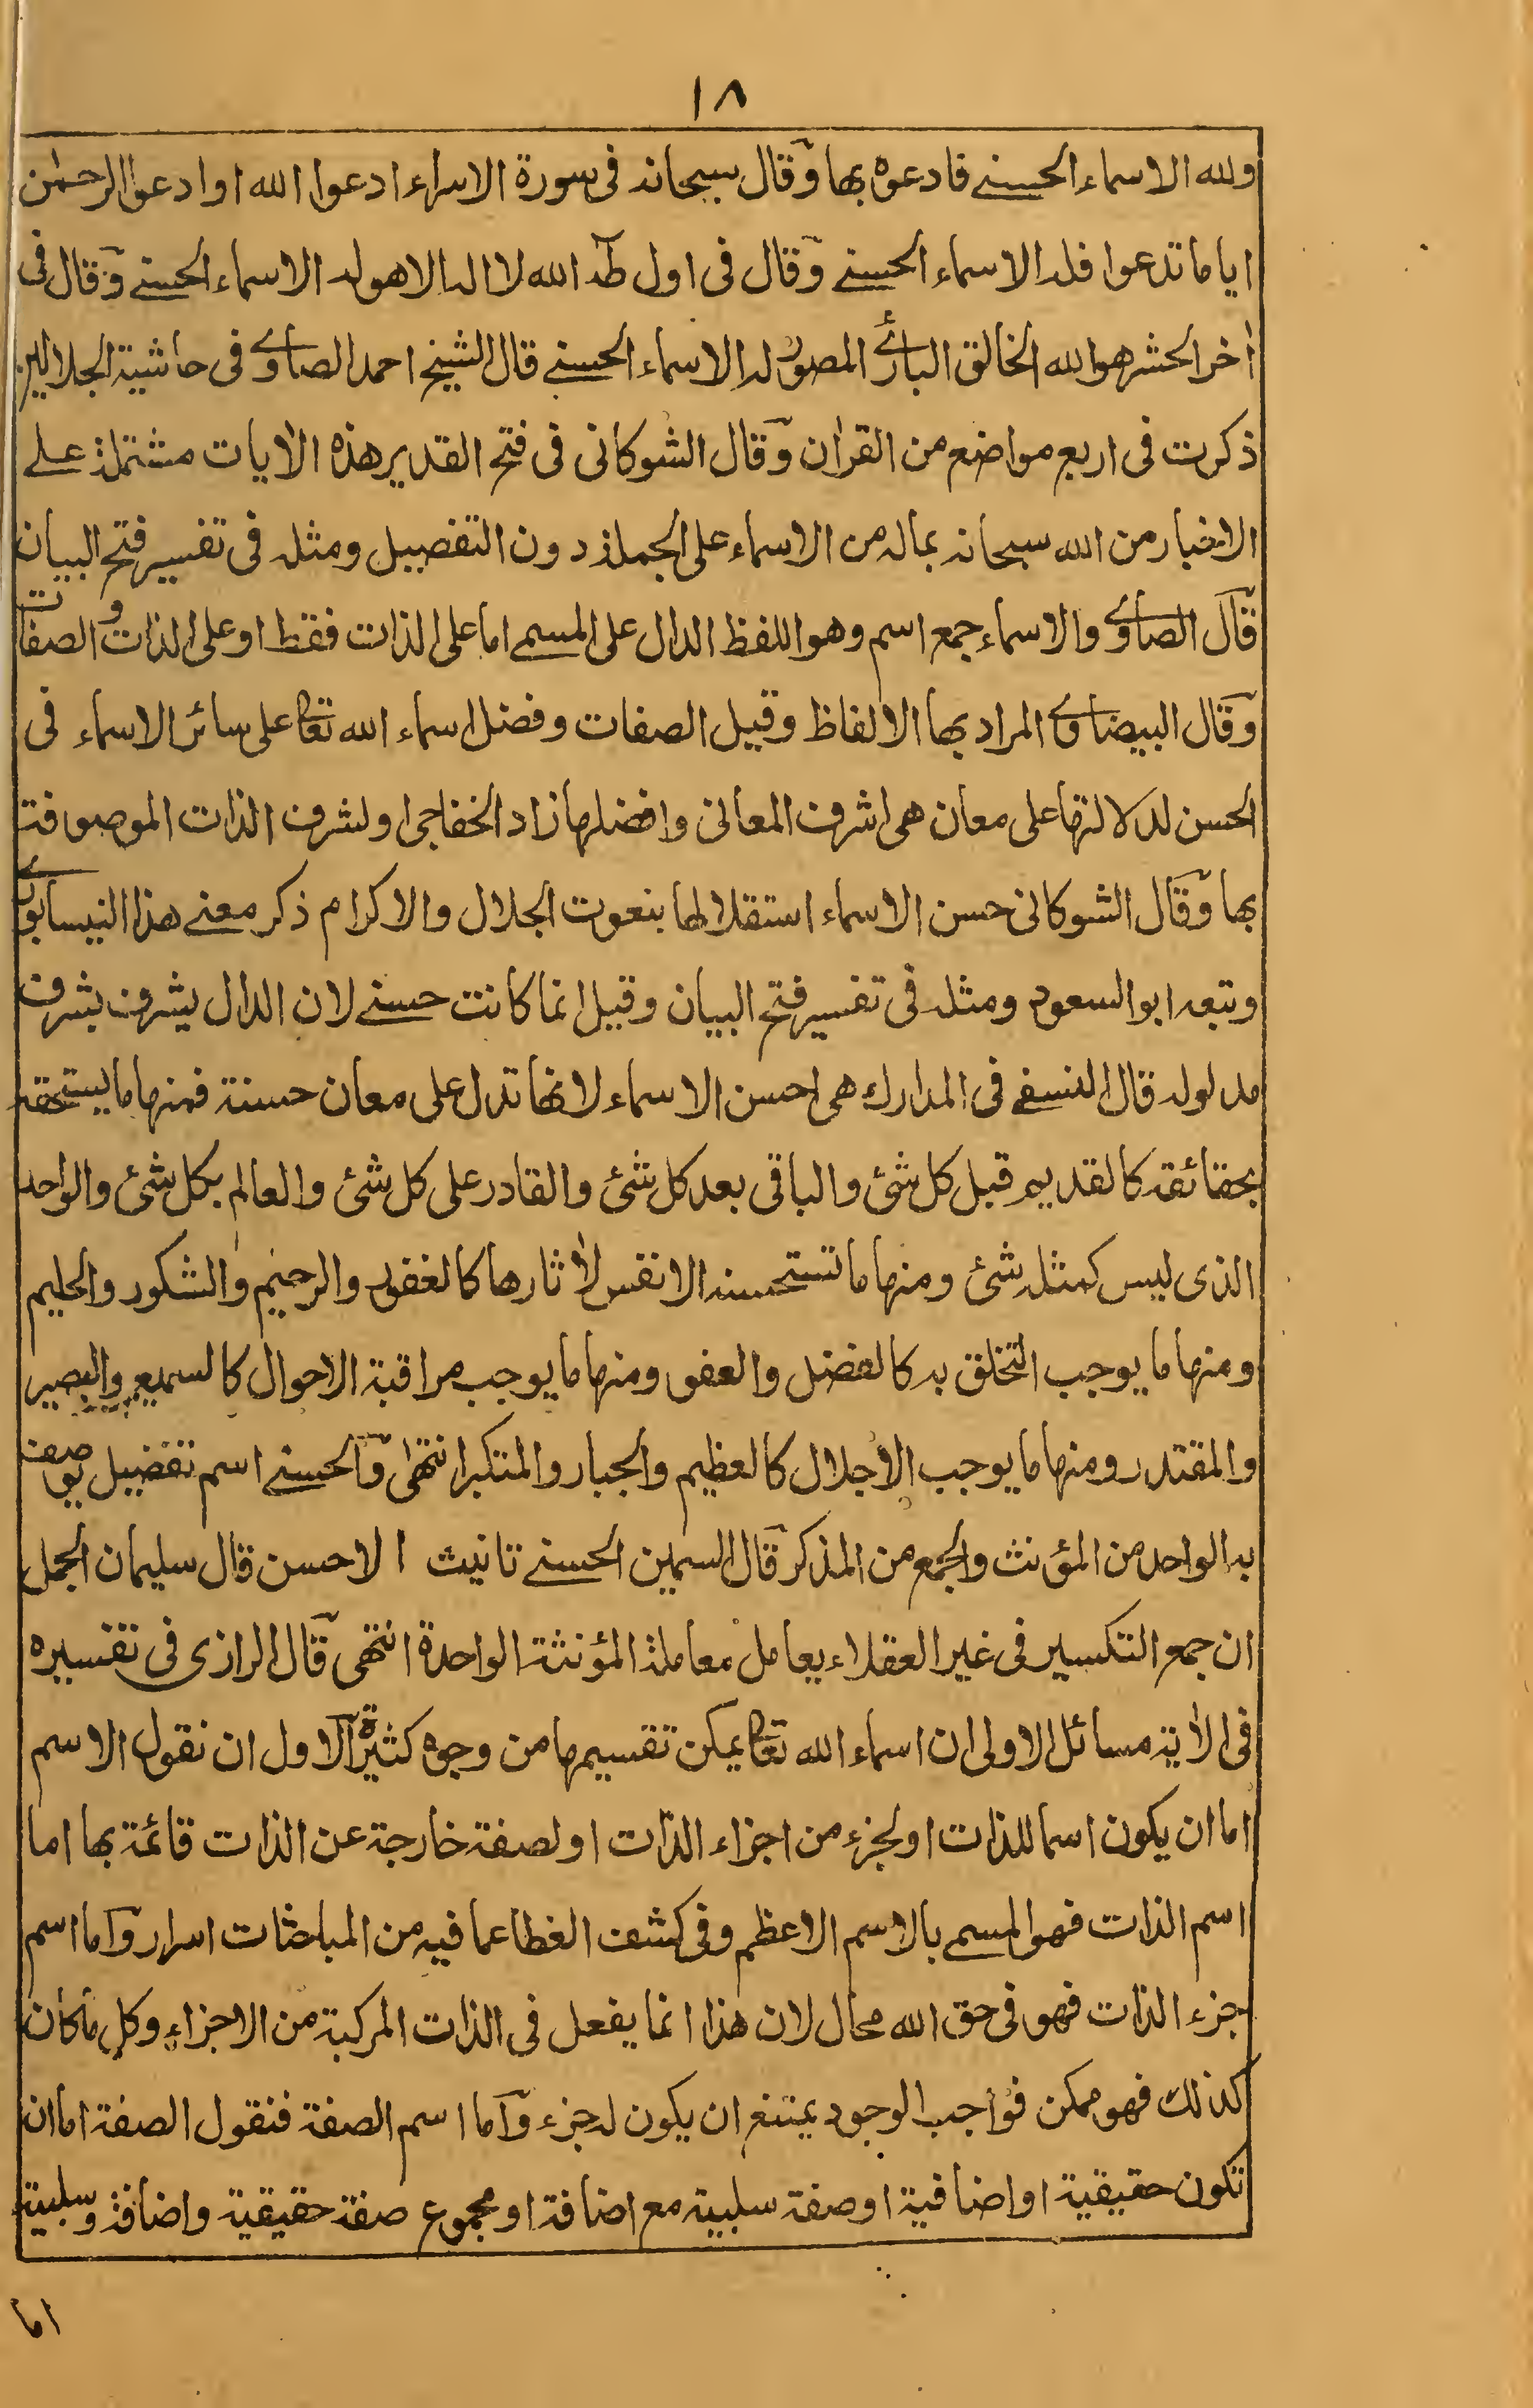 ١٨
ولله الاسماء الحسنے فادعوه بها وقال سبحانه فى سورة الاسراء ادعوا الله او ادعوا الرحمٰن
ايا ما تدعوا فله الاسماء الحسنے وقال فى اول طٰه الله لا اله الا هو له الاسماء الحسنے وقال فى
اٰخر الحشر هو الله الخالق البارئ المصور له الاسماء الحسنے قال الشيخ احمد الصاوے فى حاشية الجلالين
ذكرت فى اربع مواضع من القراٰن وقال الشوكانى فى فتح القدير هذه الاٰيات مشتملة علے
الاخبار من الله سبحانه بماله من الاسماء على الجملة دون التفصيل ومثله فى تفسير فتح البيان
قال الصاوے والاسماء جمع اسم وهو اللفظ الدال على المسمے اما على الذات فقط او على الذات والصفات
وقال البيضاوے المراد بها الالفاظ وقيل الصفات وفضل اسماء الله تعالى على سائر الاسماء فى
الحسن لدلالتها على معان هى اشرف المعانى وافضلها زاد الخفاجى او لشرف الذات الموصوفة
بها وقال الشوكانى حسن الاسماء استقلالها بنعوت الجلال والاكرام ذكر معنے هذا النيسابورے
وتبعه ابو السعود ومثله فى تفسير فتح البيان وقيل انما كانت حسنے لان الدال يشرف بشرف
مدلوله قال النسفے فى المدارك هى احسن الاسماء لانها تدل على معان حسنة فمنها ما يستحقه
بحقائقه كالقديم قبل كل شئ والباقى بعد كل شئ والقادر على كل شئ والعالم بكل شئ والواحد
الذى ليس كمثله شئ ومنها ما تستحسنه الانفس لاٰثارها كالغفور والرحيم والشكور والحليم
ومنها ما يوجب التخلق به كالفضل والعفو ومنها ما يوجب مراقبة الاحوال كالسميع والبصير
والمقتدر ومنها ما يوجب الاجلال كالعظيم والجبار والمتكبر انتهى والحسنے اسم تفضيل يوصف
به الواحد من المؤنث والجمع من المذكر قال السمين الحسنے تانيث الاحسن قال سليمان الجمل
ان جمع التكسير فى غير العقلاء يعامل معاملة المؤنثة الواحدة انتهى قال الرازى فى تفسيره
فى الاٰية مسائل الاولى ان اسماء الله تعالى يمكن تقسيمها من وجوه كثيرة الاول ان نقول الاسم
اما ان يكون اسما للذات او لجزء من اجزاء الذات او لصفة خارجة عن الذات قائمة بها اما
اسم الذات فهو المسمے بالاسم الاعظم وفى كشف الغطا عما فيه من المباحثات اسرار واما اسم
جزء الذات فهو فى حق الله محال لان هذا انما يفعل فى الذات المركبة من الاجزاء وكل ما كان
كذلك فهو ممكن فواجب الوجود يمتنع ان يكون له جزء واما اسم الصفة فنقول الصفة اما ان
تكون حقيقية او اضافية او صفة سلبية مع اضافة او مجموع صفة حقيقية واضافة وسلبية
اما